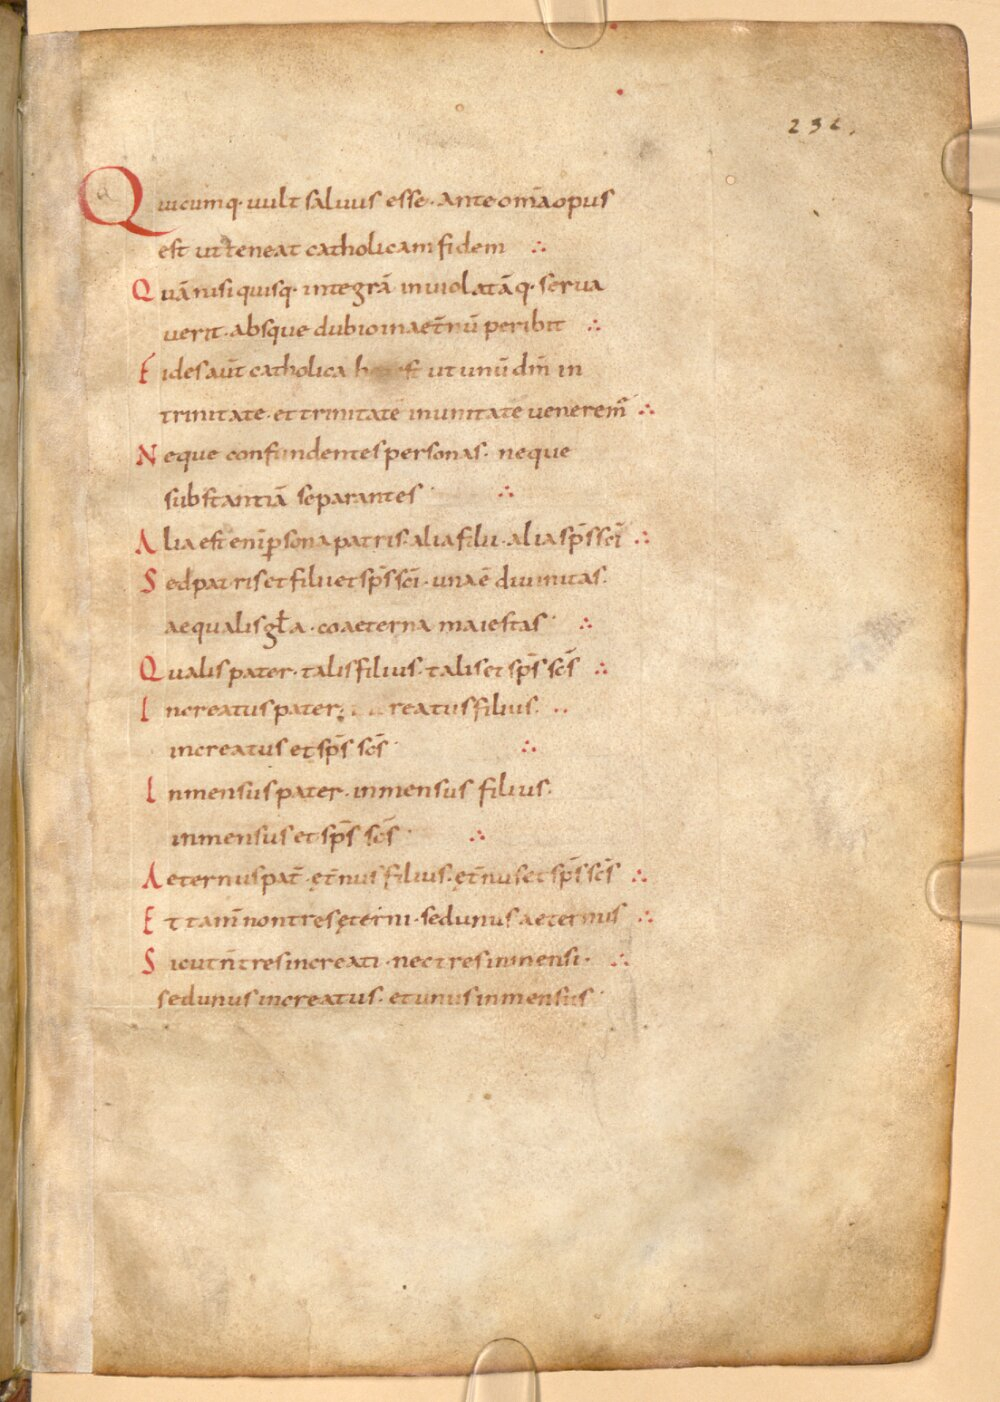 232.
Quicumq· uult saluus esse· ante om̄a opus
est ut teneat catholicam fidem ∴
Quā nisi quisq· integrā inuiolatāq· serua
uerit· absque dubio in aet̄nū peribit ∴
Fides aut̄ catholica est ut unū dm̄ in
trinitate· et trinitatē in unitate uenerem̄ ∴
Neque confundentes personas· neque
substantiā separantes· ∴
Alia est eni̅ ꝑsona patris· alia filii· alia sp̄s sc̄i ∴
Sed patris et filii et sp̄s sc̄i· una ē diuinitas·
aequalis gɫa· coaeterna maiestas· ∴
Qualis pater· talis filius· talis et sp̄s sc̄s ∴
Increatus pater· reatus filius·
increatus et sp̄s sc̄s· ∴
Inmensus pater· inmensus filius·
inmensus et sp̄s sc̄s· ∴
Aeternus pat̄· ęt̄nus filius· ęt̄nus et sp̄s sc̄s ∴
Et tam̄ non tres ęterni· sed unus aeternus ∴
Sicut n̄ tres increati· nec tres inmensi· ∴
sed unus increatus· et unus inmensus·